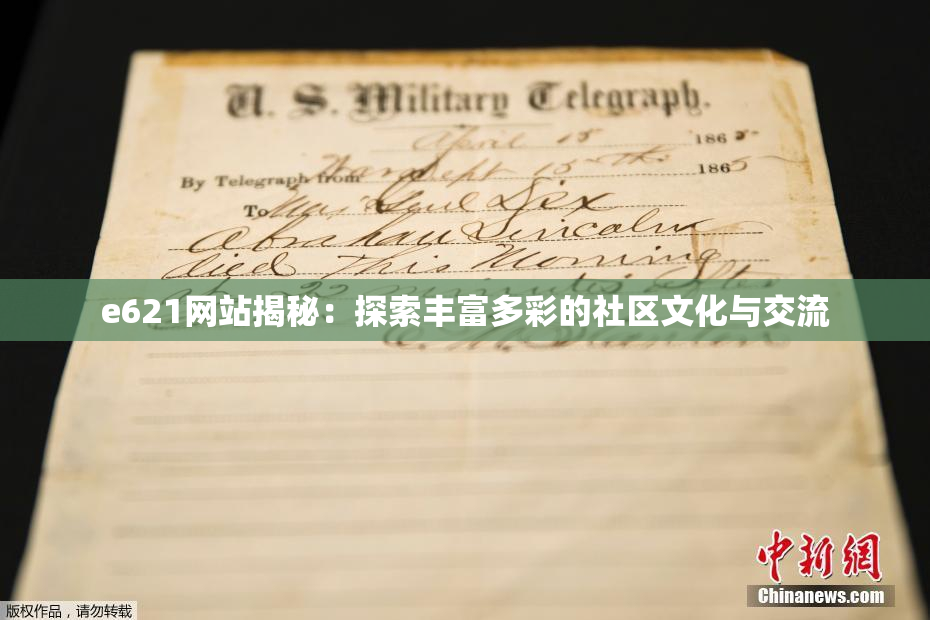 U. S. Military Telegraph.
April 15 1865
By Telegraph from War Dept 15th 1865
To Maj Genl Dix
Abraham Lincoln
died This Morning
at 22 minutes after
e621网站揭秘：探索丰富多彩的社区文化与交流
E. M. Stanton
中新網
Chinanews.com
版权作品，请勿转载